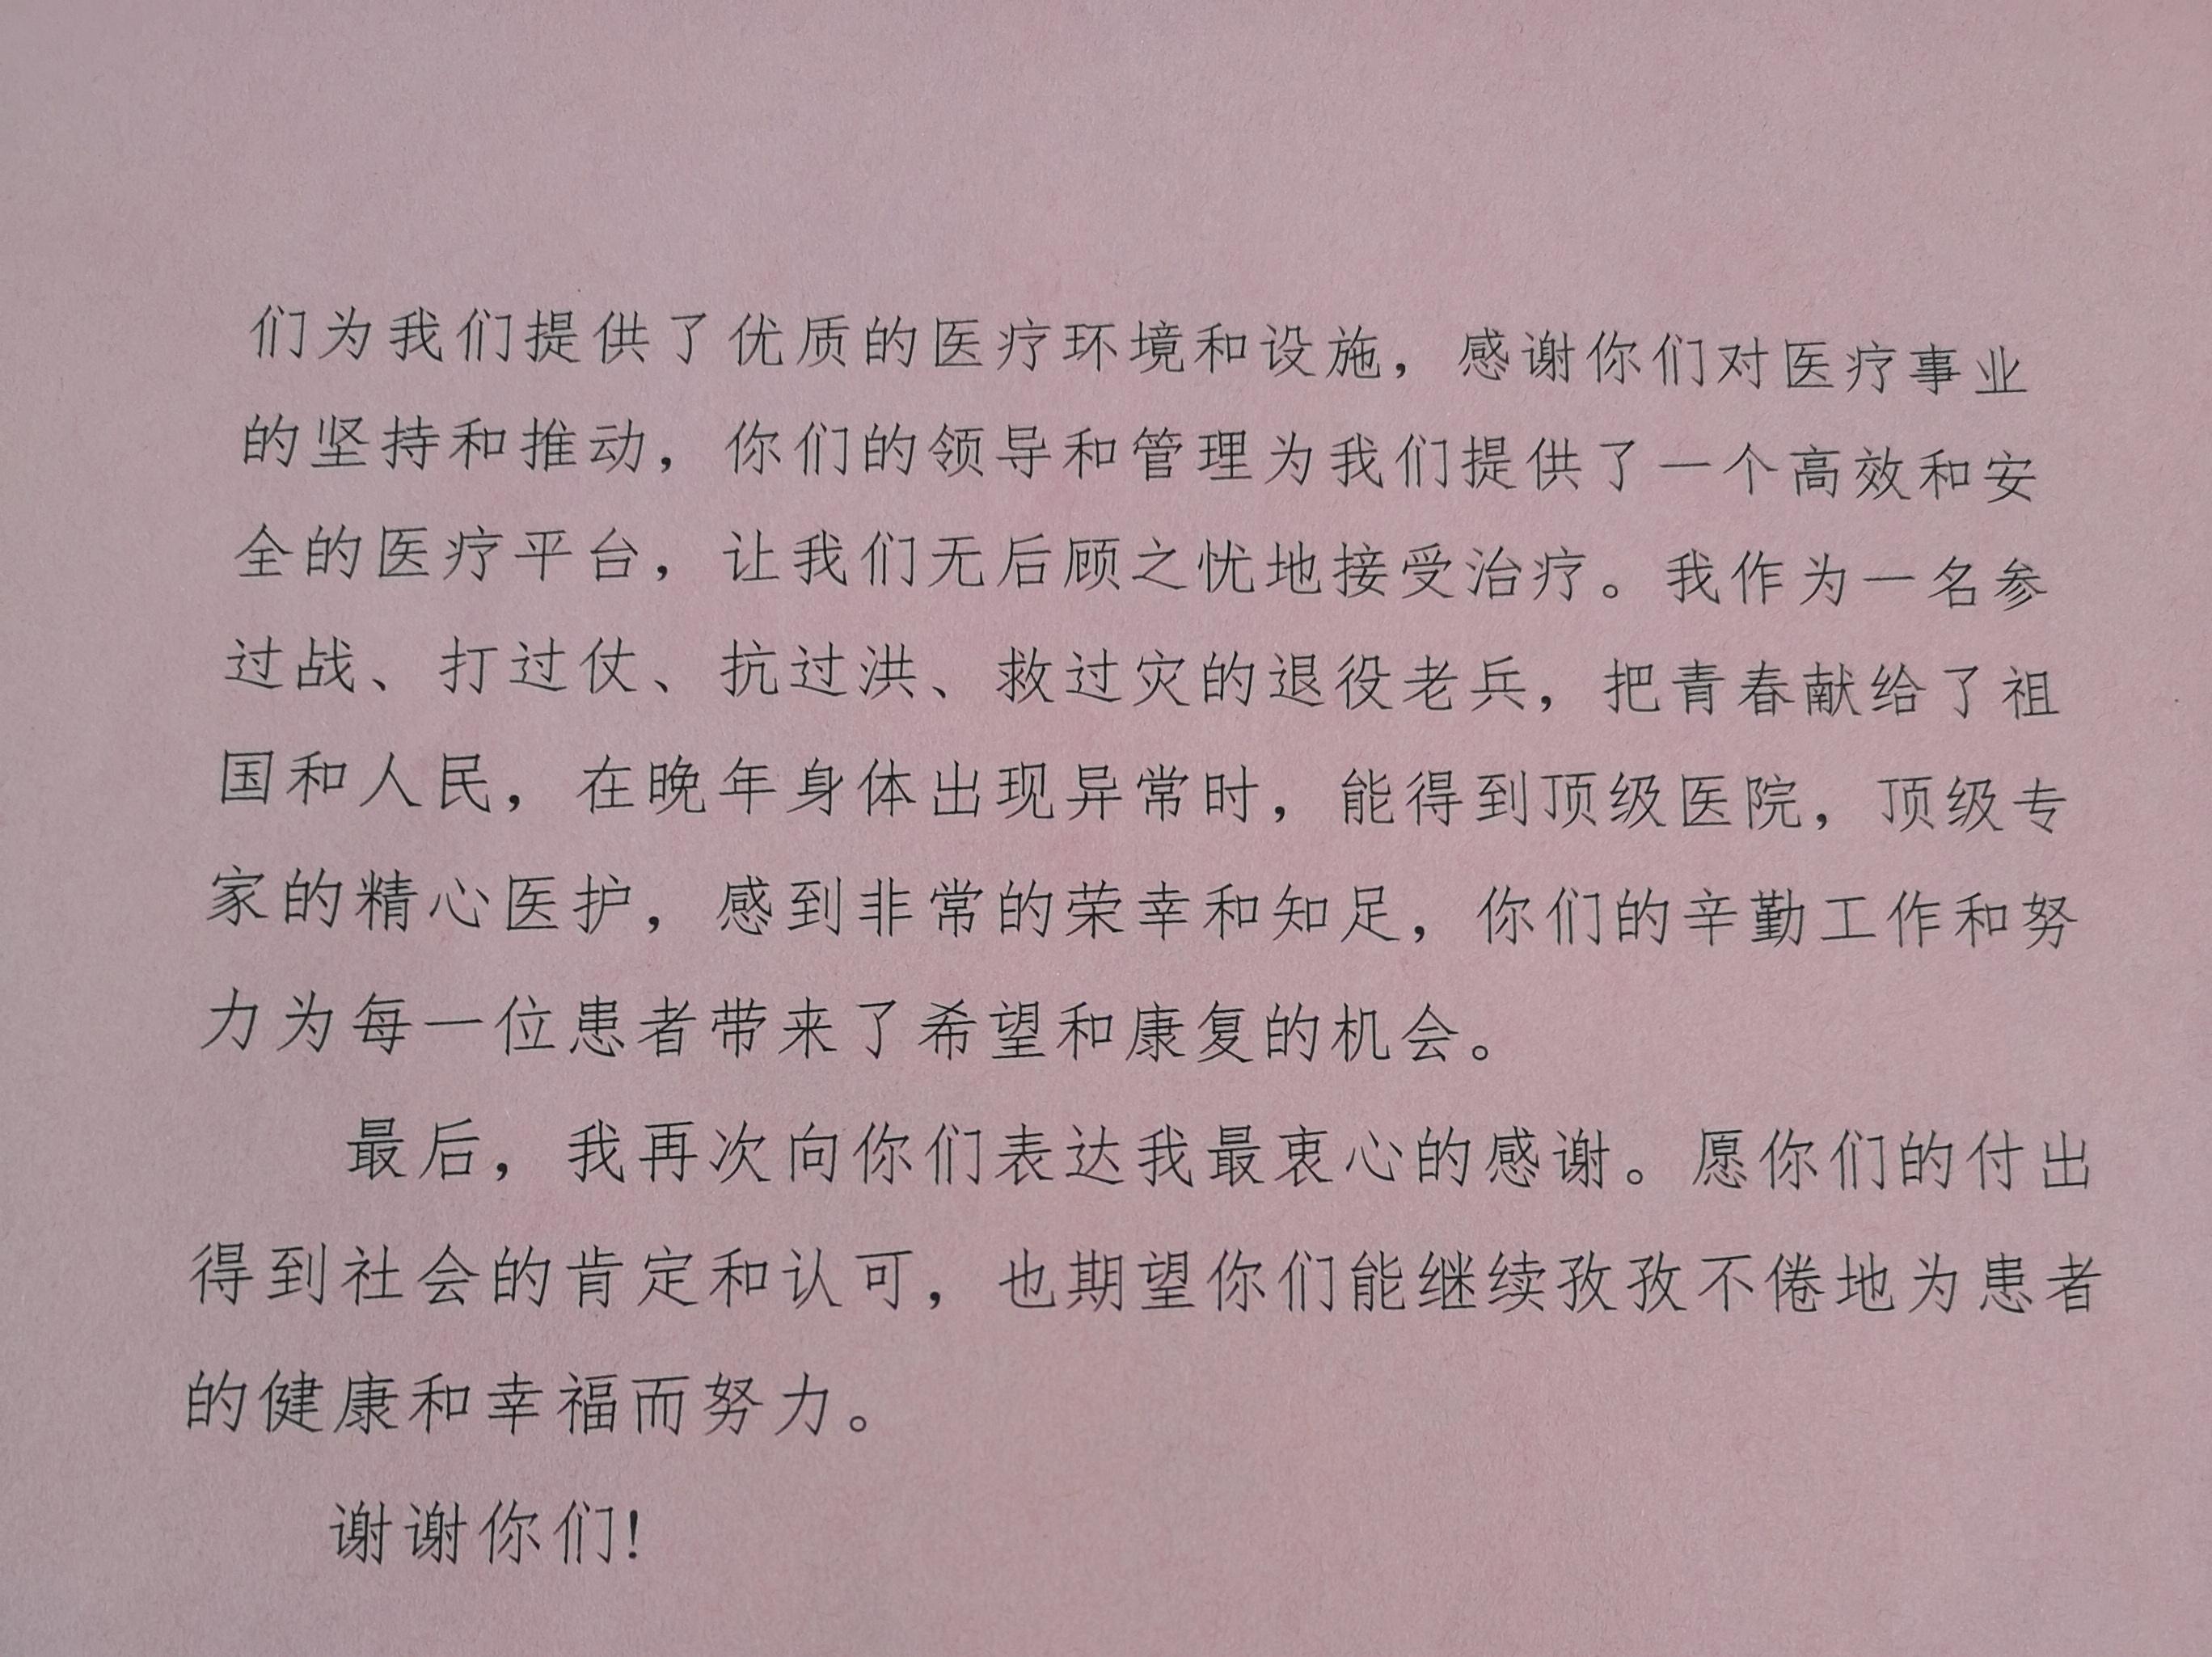 们为我们提供了优质的医疗环境和设施，感谢你们对医疗事业
的坚持和推动，你们的领导和管理为我们提供了一个高效和安
全的医疗平台，让我们无后顾之忧地接受治疗。我作为一名参
过战、打过仗、抗过洪、救过灾的退役老兵，把青春献给了祖
国和人民，在晚年身体出现异常时，能得到顶级医院，顶级专
家的精心医护，感到非常的荣幸和知足，你们的辛勤工作和努
力为每一位患者带来了希望和康复的机会。
最后，我再次向你们表达我最衷心的感谢。愿你们的付出
得到社会的肯定和认可，也期望你们能继续孜孜不倦地为患者
的健康和幸福而努力。
谢谢你们!